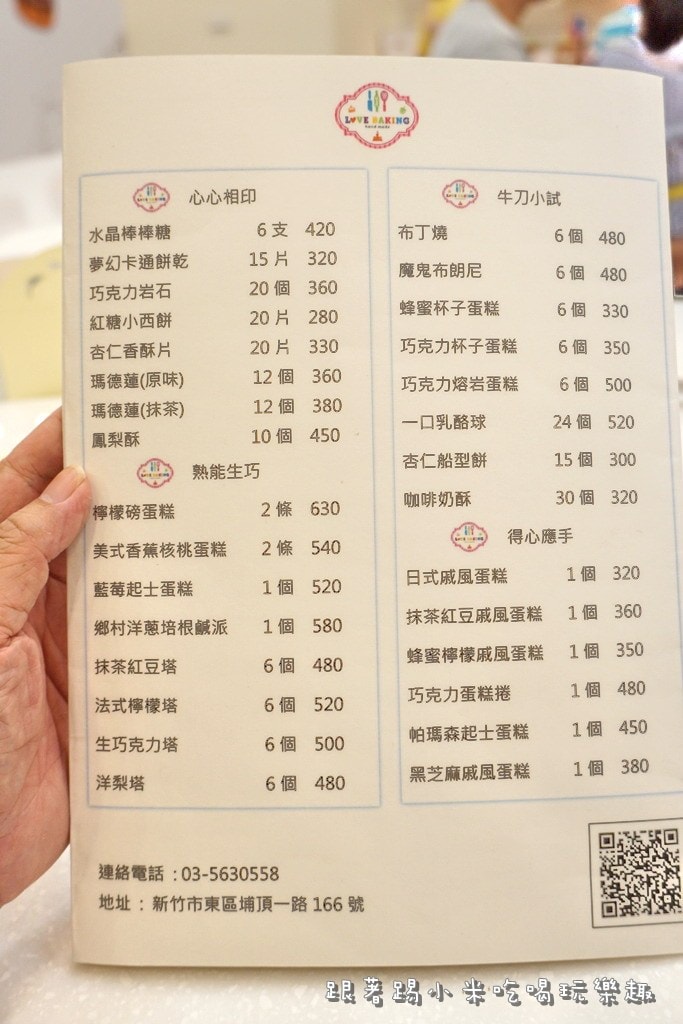 LOVE BAKING
心心相印
水晶棒棒糖 6 支 420
夢幻卡通餅乾 15 片 320
巧克力岩石 20 個 360
紅糖小西餅 20 片 280
杏仁香酥片 20 片 330
瑪德蓮(原味) 12 個 360
瑪德蓮(抹茶) 12 個 380
鳳梨酥 10 個 450
熟能生巧
檸檬磅蛋糕 2 條 630
美式香蕉核桃蛋糕 2 條 540
藍莓起士蛋糕 1 個 520
鄉村洋蔥培根鹹派 1 個 580
抹茶紅豆塔 6 個 480
法式檸檬塔 6 個 520
生巧克力塔 6 個 500
洋梨塔 6 個 480
牛刀小試
布丁燒 6 個 480
魔鬼布朗尼 6 個 480
蜂蜜杯子蛋糕 6 個 330
巧克力杯子蛋糕 6 個 350
巧克力熔岩蛋糕 6 個 500
一口乳酪球 24 個 520
杏仁船型餅 15 個 300
咖啡奶酥 30 個 320
得心應手
日式戚風蛋糕 1 個 320
抹茶紅豆戚風蛋糕 1 個 360
蜂蜜檸檬戚風蛋糕 1 個 350
巧克力蛋糕捲 1 個 480
帕瑪森起士蛋糕 1 個 450
黑芝麻戚風蛋糕 1 個 380
連絡電話 :03-5630558
地址 : 新竹市東區埔頂一路 166 號
跟著踢小米吃喝玩樂趣